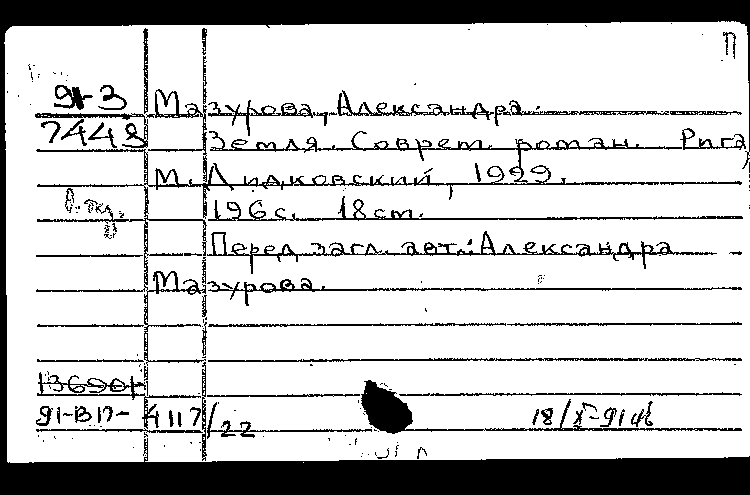 П
91-3
7448
Мазурова, Александра.
Земля. Соврем. роман. Рига,
М. Дидковский, 1929.
196 с. 18 см.
Перед загл. авт.: Александра
Мазурова.
136901
91-ВП-4117/22
18/X-91